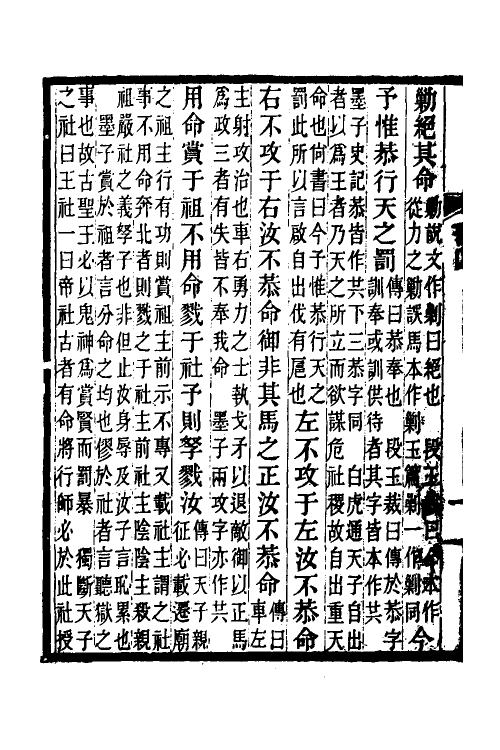 勦絕其命
勦說文作劋曰絕也 段玉裁曰今本作
從力之勦誤馬本作剿玉篇剿一作剿同
今
予惟恭行天之罰
傳曰恭奉也 段玉裁曰傳於恭字
訓奉或訓供待者其字皆本作共
墨子史記恭皆作共下三恭字同 白虎通天子自出
者以爲王者乃天之所立而欲謀危社稷故自出重天
命也尚書曰今予惟恭行天之
罰此所以言啟自出伐有扈也
左不攻于左汝不恭命
右不攻于右汝不恭命御非其馬之正汝不恭命
傳曰
車左
主射攻治也車右勇力之士執戈矛以退敵御以正馬
爲政三者有失皆不奉我命 墨子兩攻字亦作共
用命賞于祖不用命戮于社予則孥戮汝
傳曰天子親
征必載遷廟
之祖主行有功則賞祖主前示不專又載社主謂之社
事不用命奔北者則戮之于社主前社主陰陰主殺親
祖嚴社之義孥子也非但止汝身辱及汝子言恥累也
墨子賞於祖者言分命之均也僇於社者言聽獄之
事也故古聖王必以鬼神爲賞賢而罰暴 獨斷天子
之社曰王社一曰帝社古者有命將行師必於此社授